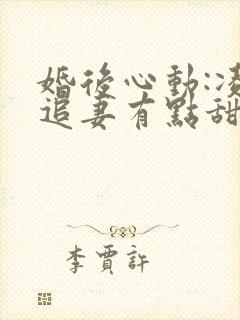 婚後心動:凌
追妻有點甜
李賈許